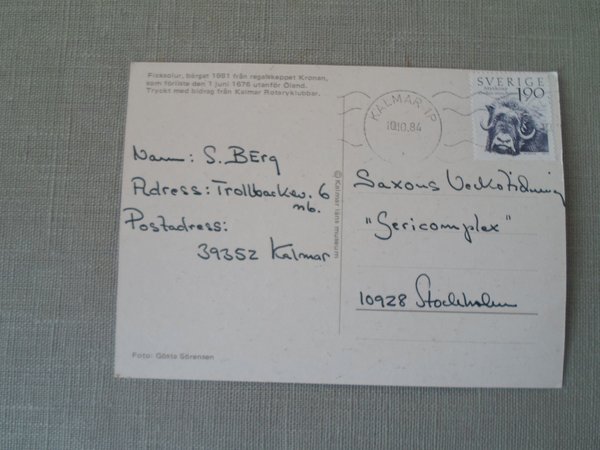 Ficksolur, bärgat 1981 från regalskeppet Kronan,
som förliste den 1 juni 1676 utanför Öland.
Tryckt med bidrag från Kalmar Rotaryklubbar.
KALMAR 1P
10.10.84
SVERIGE
190
Namn: S. BErg
Adress: Trollbackev. 6
nb.
Postadress:
39352 Kalmar
© Kalmar läns museum
Saxons VeckoTidning
"Sericomplex"
10928 Stockholm
Foto: Gösta Sörensen